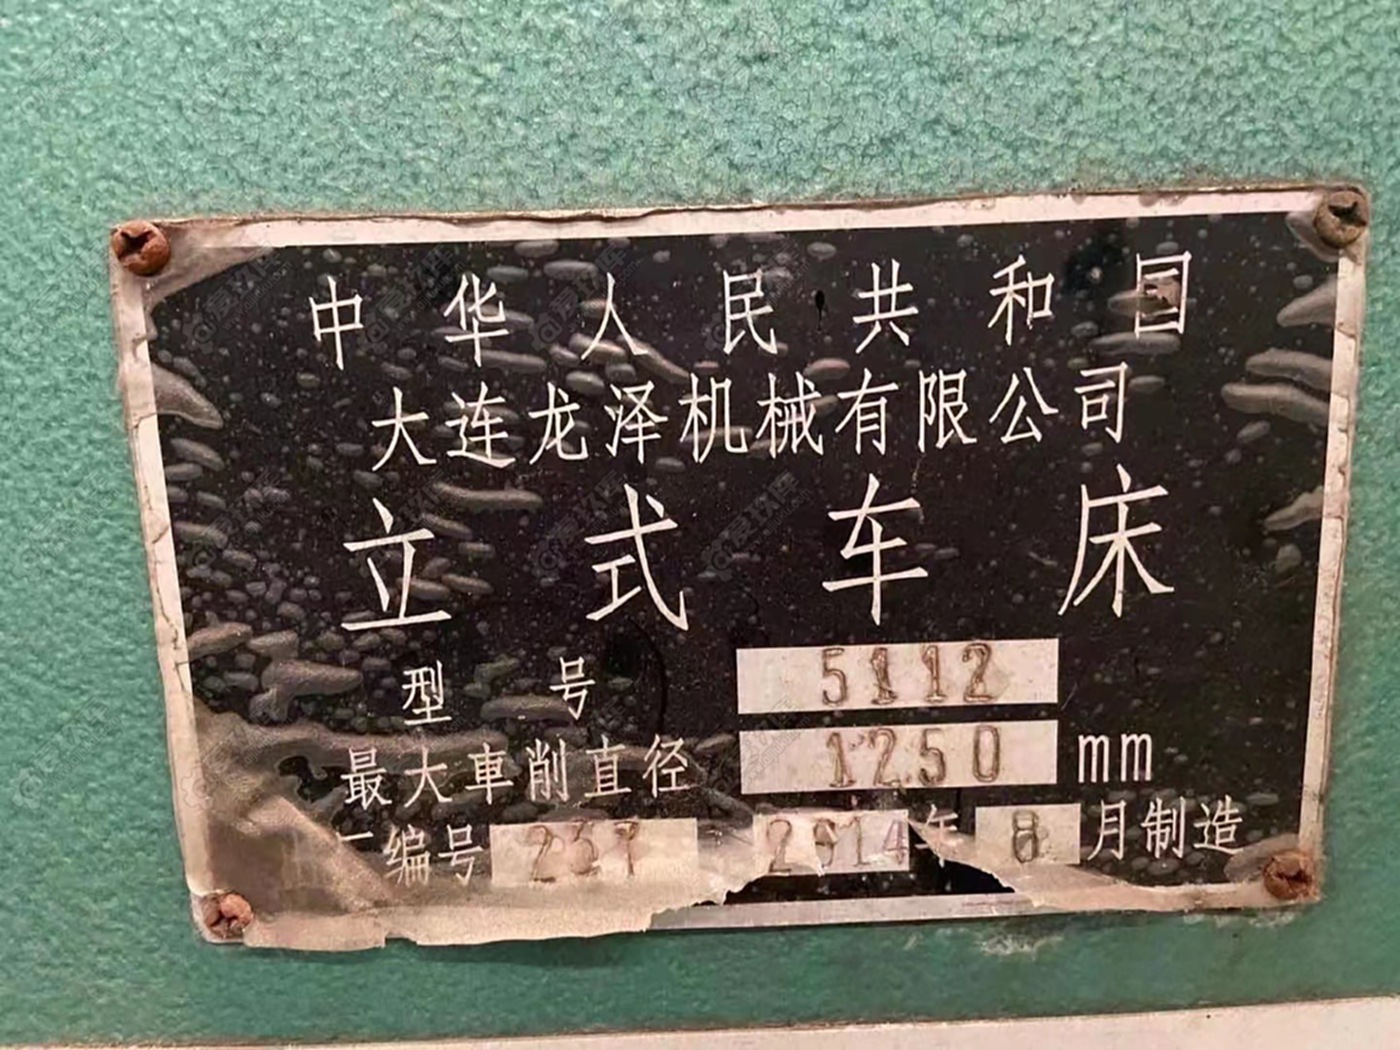 中华人民共和国
大连龙泽机械有限公司
立式车床
型号 5112
最大車削直径 1250 mm
编号 237 2014年 8月制造